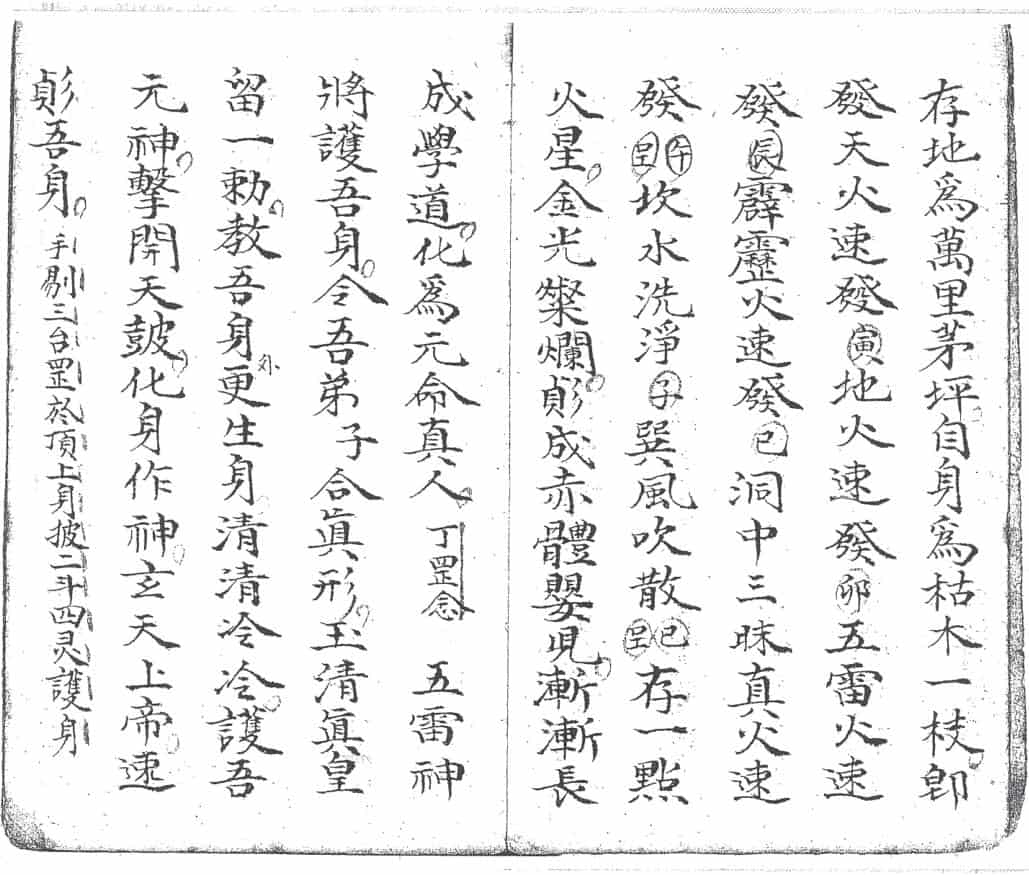 存地為萬里茅坪自身為枯木一枝即
發天火速發寅地火速發卯五雷火速
發辰霹靂火速發巳洞中三昧真火速
發午罡坎水洗淨子巽風吹散巳罡存一點
火星金光燦爛㒵成赤體嬰児漸漸長
成學道化為元命真人丁罡念 五雷神
將護吾身令吾弟子合眞形玉清眞皇
留一勅教吾身外更生身清清冷冷護吾
元神擊開天皷化身作神玄天上帝速
吾身手剔三台罡於頂上身披二斗四灵護身